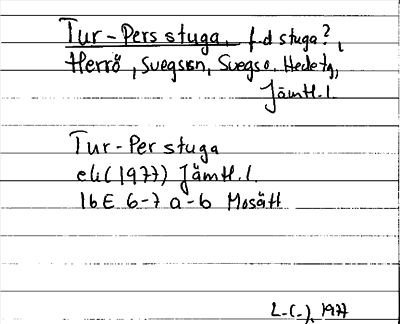 Tur-Pers stuga, f.d stuga?,
Herrö, Svegs sn, Svegs o. Hede tg,
Jämtl. l.
Tur-Per stuga
ek (1977) Jämtl. l.
16E 6-7 a-b Mosätt
L-(-), 1977